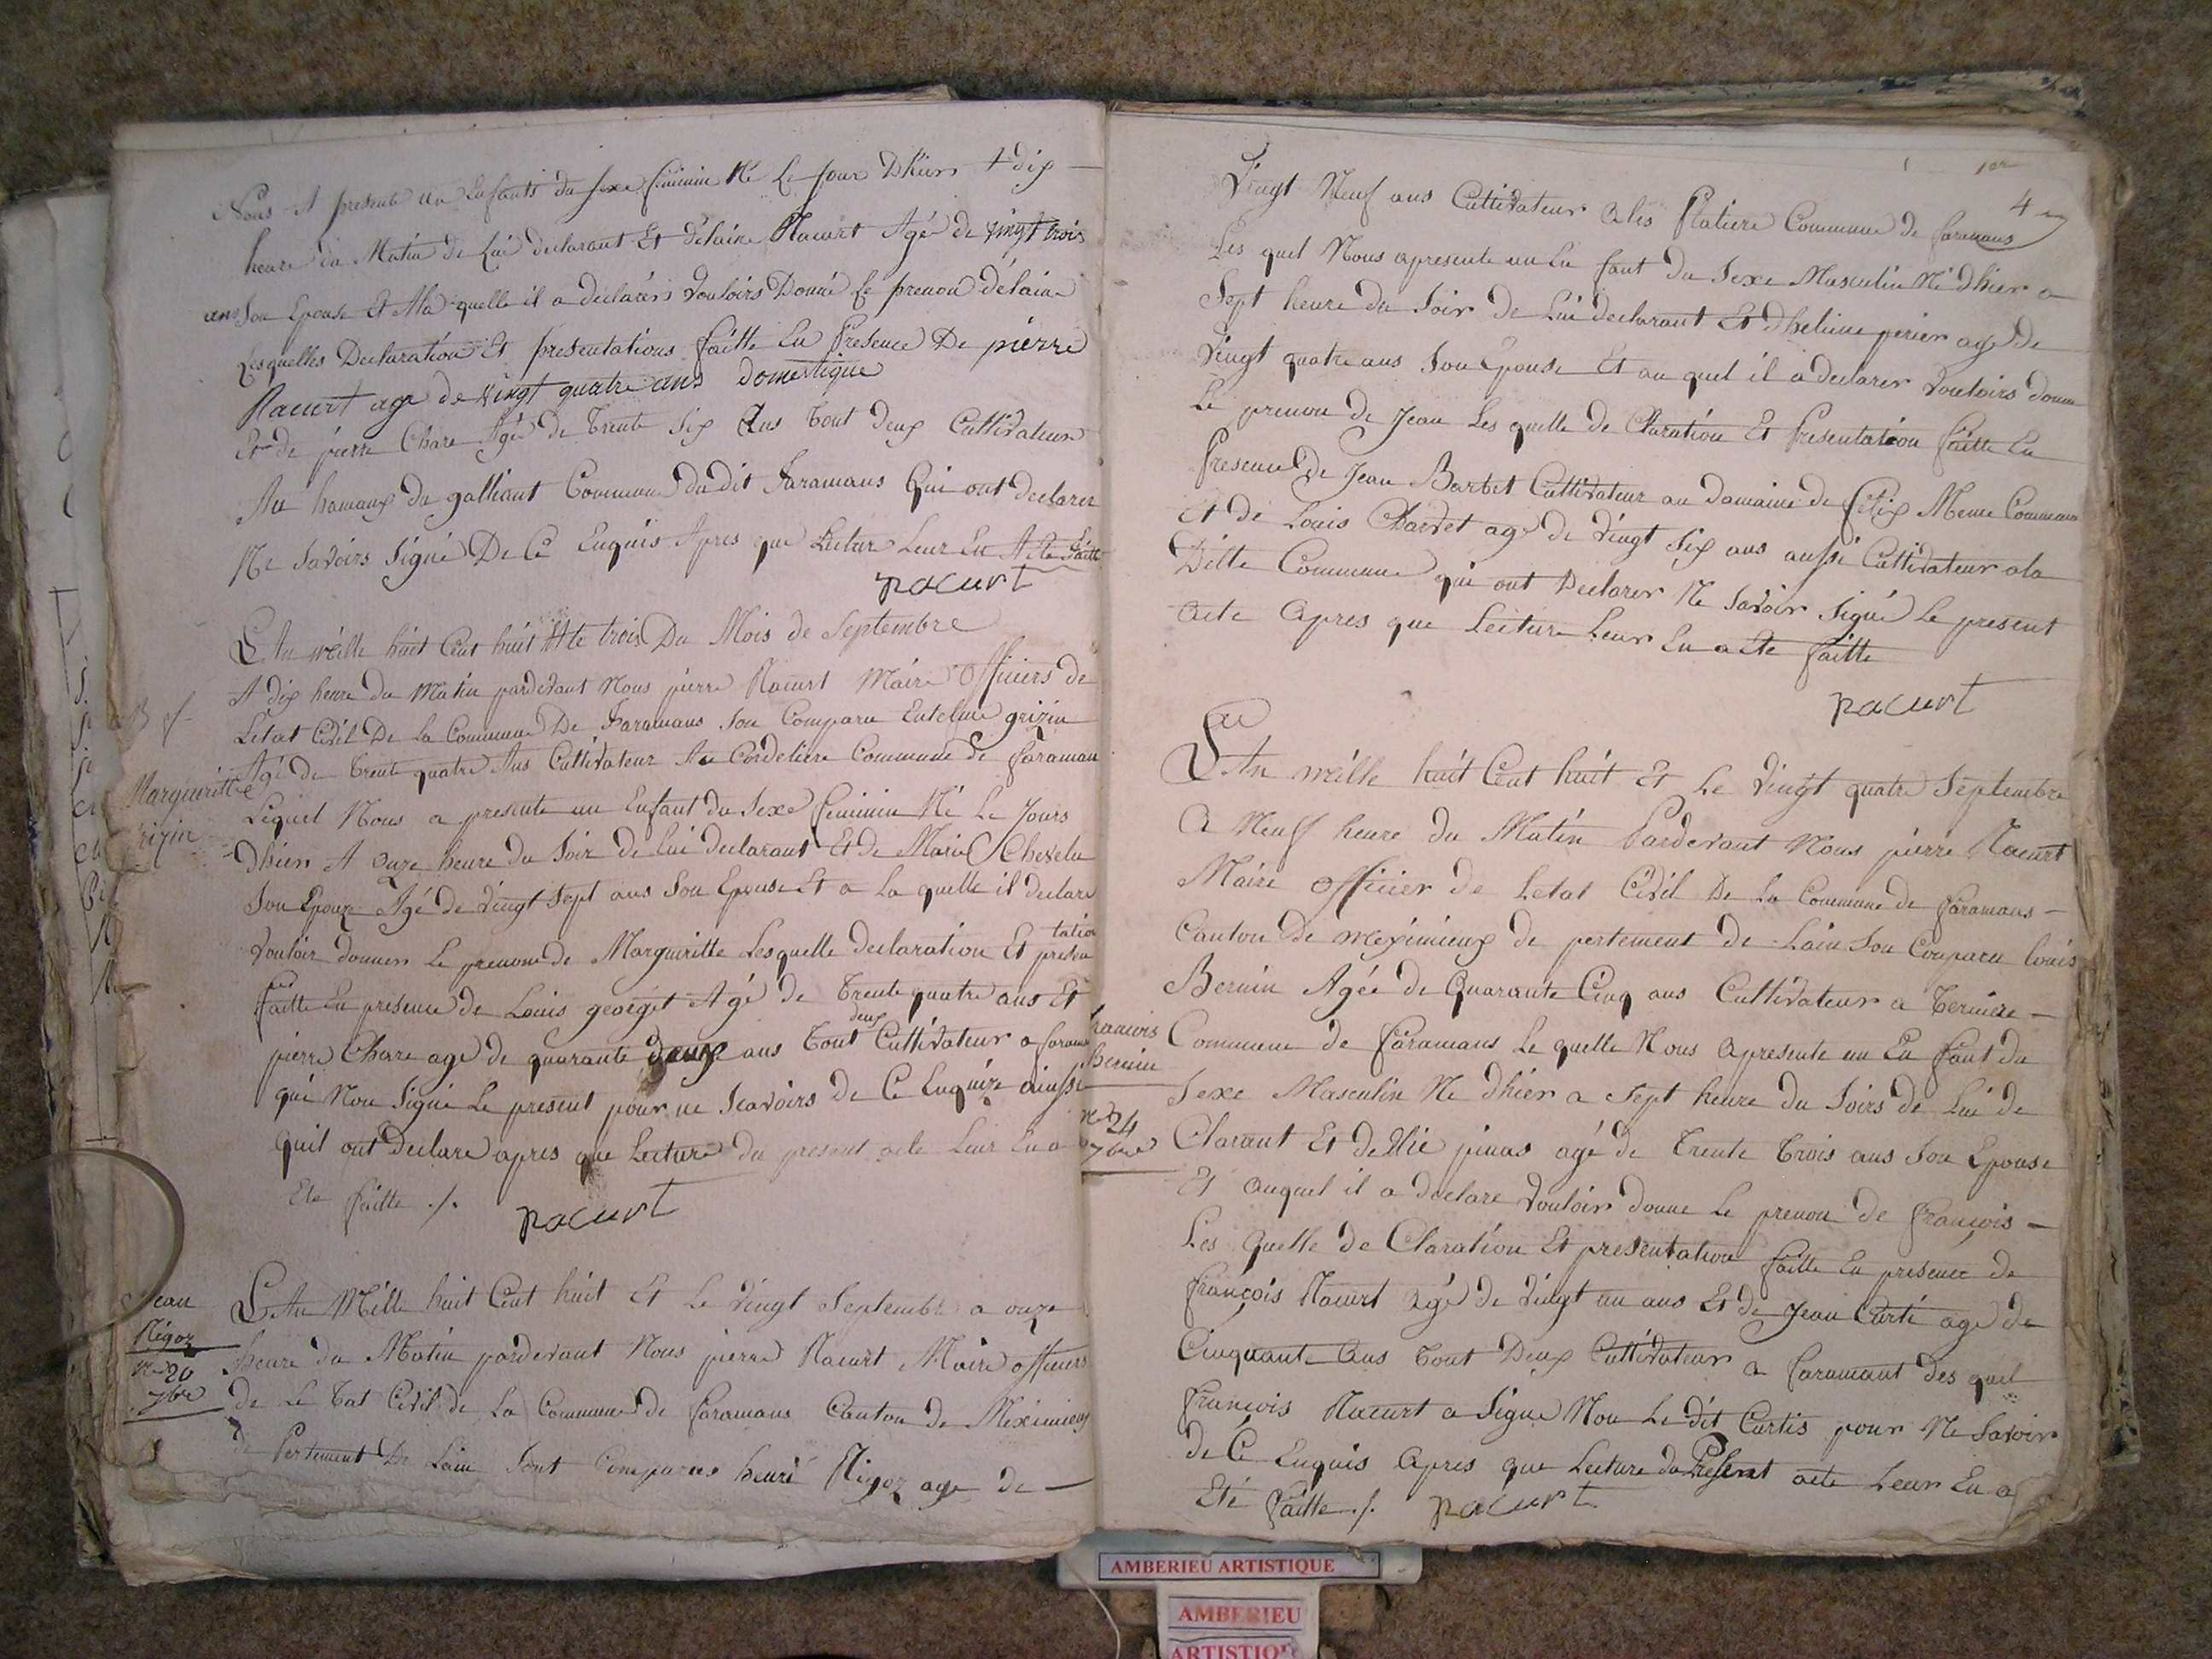 Nous A presenté un Enfants du sexe feminin Né Le jour Dhiers A dix
heure du Matin de lui declarant Et délaine Nacurt Agé de vingt trois
ans Son Epouse Et Ala quelle il a declarérs vouloirs Donné Le prenon délaine
Lesquelles Declaration Et presentations faitte En Presence De piérre
Nacurt age de vingt quatre ans domestique
Et de pierre Chare Agé de Trente Six Ans tout deux Cultivateur
Au hamaux du galliant Commune du dit Faramans Qui ont declarer
Ne Savoirs Signé De Ce Enquis Apres que Lecture Leur En A été faitte
nacurt
LAn mille huit Cent huit Et le trois Du Mois de Septembre
A dix heure du Matin pardevant Nous pierre Nacurt Maire Officiers de
Létat Civil De La Commune De Faramans Son Comparu Entelme grizin
Agé de Trente quatre Ans Cultivateur Au Cordeliere Commune de faraman
Margueritte
rizin
Lequel Nous a presente un Enfant du Sexe feminin Né Le Jours
Dhiers A onze heure du Soir de Lui declarant Et de Marie Chevelu
Son Epouze Agé de Vingt Sept ans Son Epouse Et a La quelle il declare
vouloir donner Le prenom de Margueritte Lesquelle declaration Et presen
tation
faitte En presence de Louis georget Agé de Trente quatre ans Et
pierre Chare age de quarante deux ans Tout deux Cultivateur a faramans
qui Non Signé Le present pour ne Scavoirs de Ce Enquize ainssi
quil ont Declare apres que Lecture du present acte Leur En a
Ete faitte ./.
nacurt
Jean
Rigoz
né 20
7bre
LAn Mille huit Cent huit Et Le Vingt Septembre a onze
heure du Matin pardevant Nous pierre Nacurt Maire officiers
de Le Tat Civil de La Commune de faramans Canton de Méximieux
de Pertement De Lain Sont Comparus henri Rigoz age de
1er
4
Vingt Neuf ans Cultivateur a les Platiere Commune de faramans
Les quel Nous apresente un En fant du Sexe Masculin Né dhier a
Sept heure du Soir de Lui declarant Et dheleine perier age de
Vingt quatre ans Son Epouse Et au quel il a declarer vouloirs donne
Le prenon de Jean Les quelle de Claration Et Presentation faitte En
Presence de Jean Barbet Cultivateur au domaine de felix Meme Commune
Et de Louis Charvet age de Vingt Six ans aussi Cultivateur a la
Ditte Commune qui ont Declarer Ne Savoir Signé Le present
acte apres que Lecture Leur En a Ete faitte
nacurt
francois
bernin
né 24
7bre
LAn mille huit Cent huit Et Le Vingt quatre Septembre
A Neuf heure du Matin Pardevant Nous pierre Nacurt
Maire officier de Letat Civil De La Commune de faramans
Canton de meximieux de pertement de Lain Son Comparu louis
Bernin Agée de Quarante Cinq ans Cultivateur a
Commune de faramans Le quelle Nous apresente un En fant du
Sexe Masculin Ne dhier a Sept heure du Soirs de Lui de
Clarant Et de agé de Trente Trois ans Son Epouse
Et auquel il a declare vouloir donne Le prenon de françois
Les quelle de Claration Et presentation faitte En presence de
françois Nacurt agé de Vingt un ans Et de Jean Curti age de
Cinquante ans Tout Deux Cultivateur a faramant des quel
francois Nacurt a Signe Non Le dit Curtis pour Ne Savoir
de Cé Enquis apres que Lecture du Présent acte Leur En a
Eté faitte ./. nacurt
AMBERIEU ARTISTIQUE
AMBERIEU
ARTISTIQUE